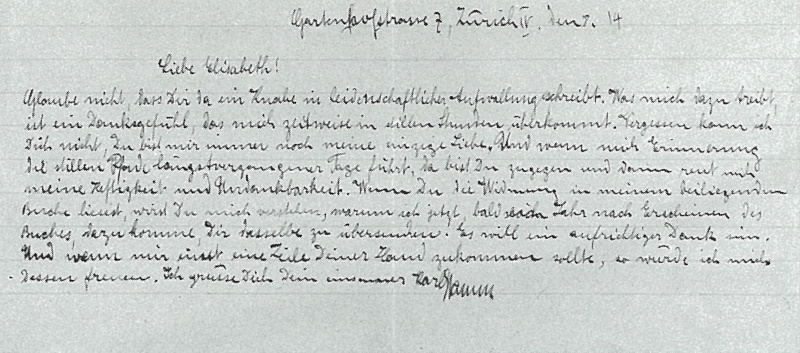 Gartenhofstrasse 7, Zürich IV. den 14
Liebe Elisabeth!
Glaube nicht, dass Dir da ein Knabe in leidenschaftlicher Aufwallung schreibt. Was mich dazu treibt,
ist ein Danksgefühl, das mich zeitweise in stillen Stunden überkommt. Vergessen kann ich
Dich nicht, Du bist mir immer noch meine einzige Liebe. Und wenn mich Erinnerung
die stillen Pfade längstvergangener Tage führt, da bist Du zugegen und dann reut mich
meine Heftigkeit und Undankbarkeit. Wenn Du die Widmung in meinem beiliegenden
Buche liesest, wirst Du mich verstehen, warum ich jetzt, bald Jahr nach Erscheinen des
Buches, dazu komme, Dir dasselbe zu übersenden. Es will ein aufrichtiger Dank sein.
Und wenn mir einst eine Zeile Deiner Hand zukommen sollte, so würde ich mich
dessen freuen. Ich grüsse Dich Dein einsamer Karl